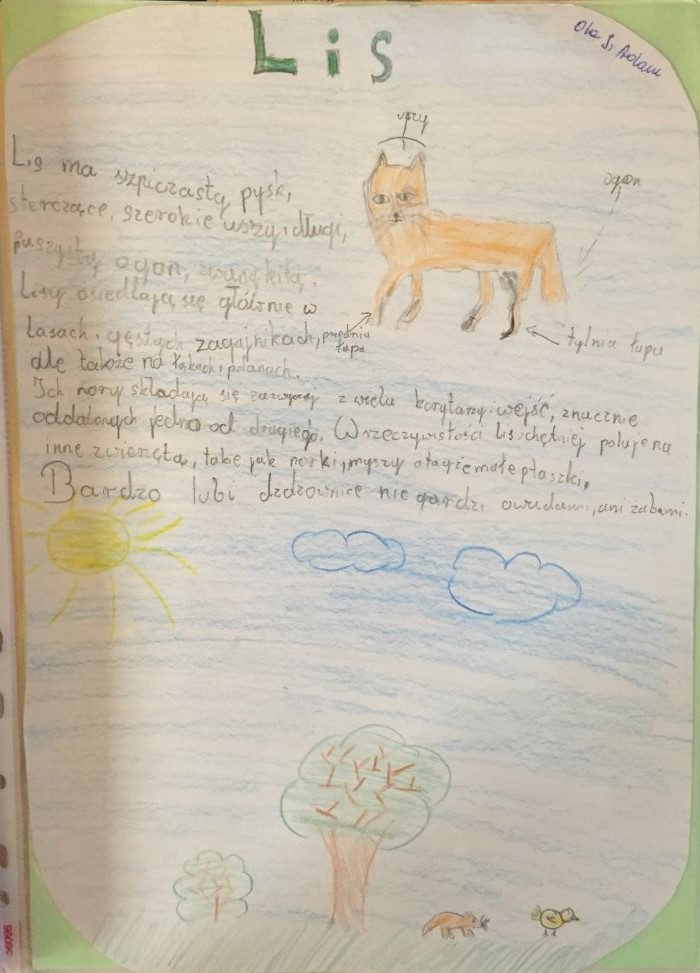 Lis
Ola S, Adam
uszy
ogon
Lis ma szpiczastą pysk,
sterczące, szerokie uszy i długi,
puszysty ogon, zwany kitą.
Lisy osiedlają się głównie w
lasach i gęstych zagajnikach,
przednia
łapa
tylnia łapa
ale także na łąkach i polanach.
Ich nory składają się zazwyczaj z wielu korytarzy i wejść, znacznie
oddalonych jedno od drugiego. W rzeczywistości lis chętniej poluje na
inne zwierzęta, takie jak norki, myszy a także małe ptaszki,
Bardzo lubi dżdżownice nie gardzi owadami, ani żabami.